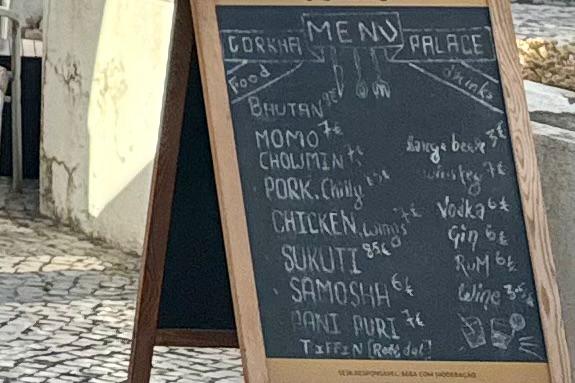 MENU
GORKHA PALACE
Food
drinks
BHUTAN 9€
MOMO 7€
CHOWMIN 7€
PORK. Chilly
CHICKEN. wings 7€
SUKUTI 85€
SAMOSHA 6€
PANI PURI 7€
TIFFIN
large beer 3€
7€
Vodka 6€
Gin 6€
RuM 6€
Wine
SEJA RESPONSÁVEL. BEBA COM MODERAÇÃO.